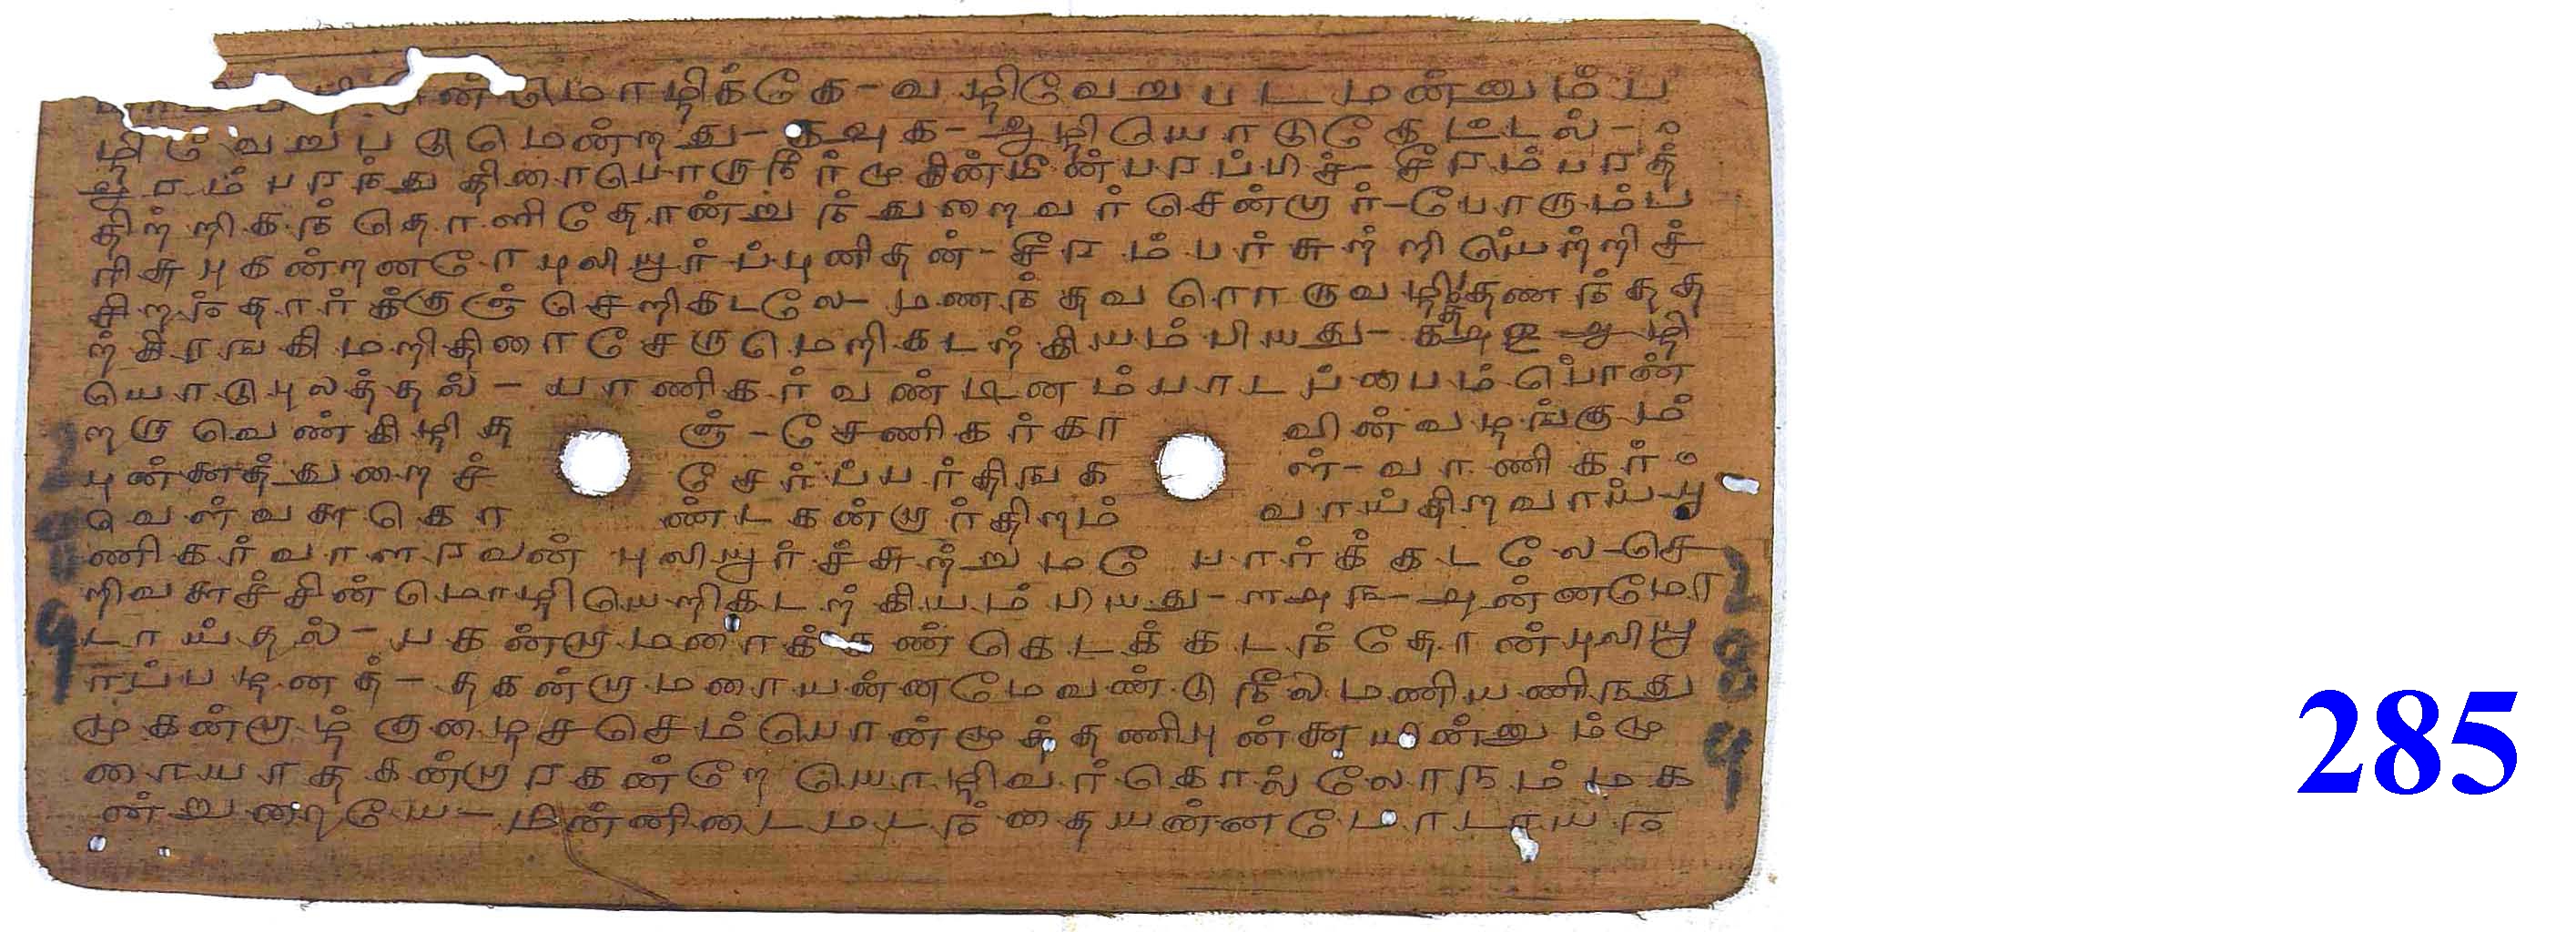 ன்மொழிக்கே-வழிவேறுபடமன்னும்ப
ழிவேறுபடுமென்றது-கஅக-ஆழியொடுகேட்டல்-
ஆரம்பரந்து திரைபொருநீர்முகின்மீன்பரப்பிச்-சீரம்பரத்
திற்றிகழ்ந்தொளிதோன்றுந்துறைவர்சென்றார்-போரும்ப
ரிசுபுகன்றனரோபுலியூர்ப்புனிதன்-சீரம்பர்சுற்றியெற்றிச்
சிறந்தார்க்குஞ்செறிகடலே-மணந்தவரொருவழித்தணந்தத
ற்கிரங்கிமறிதிரைசேருமெறிகடற்கியம்பியது-கஅஉ-ஆழி
யொடுபுலத்தல்-பாணிகர்வண்டினம்பாடப்பைம்பொன்
றருவெண்கிழித ஞ்-சேணிகர்கா வின்வழங்கும்
புன்னைத்துறைச் சேர்ப்பர்திங்க ள்-வாணிகர்
வெள்வளைகொ ண்டகன்றார்திறம் வாய்திறவாய்-பூ
ணிகர்வாளரவன் புலியூர்ச்சுற்றுமபோர்க்கடலே-செ
றிவளைச்சின்மொழியெறிகடற்கியம்பியது-ளஅங-அன்னமோ
டாய்தல்-பகன்றாமரைக்கண்கெடக்கடந்தோன்புலியூ
ர்ப்படினத்-தகன்றாமரையன்னமேவண்டுநீலமணியணிந்து
முகன்றாழ்குழைச்செம்பொன்முத்தணிபுன்னையின்னும்மு
ரையாதகன்றாரகன்றேயொழிவர்கொல்லோநம்மக
ன்றுறையே-மின்னிடைமடந்தையன்னமோடாய்ந
284
285